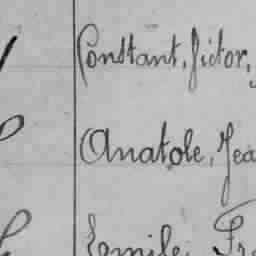 Constant, Victor,
Anatole, Jea
Emile, Fr